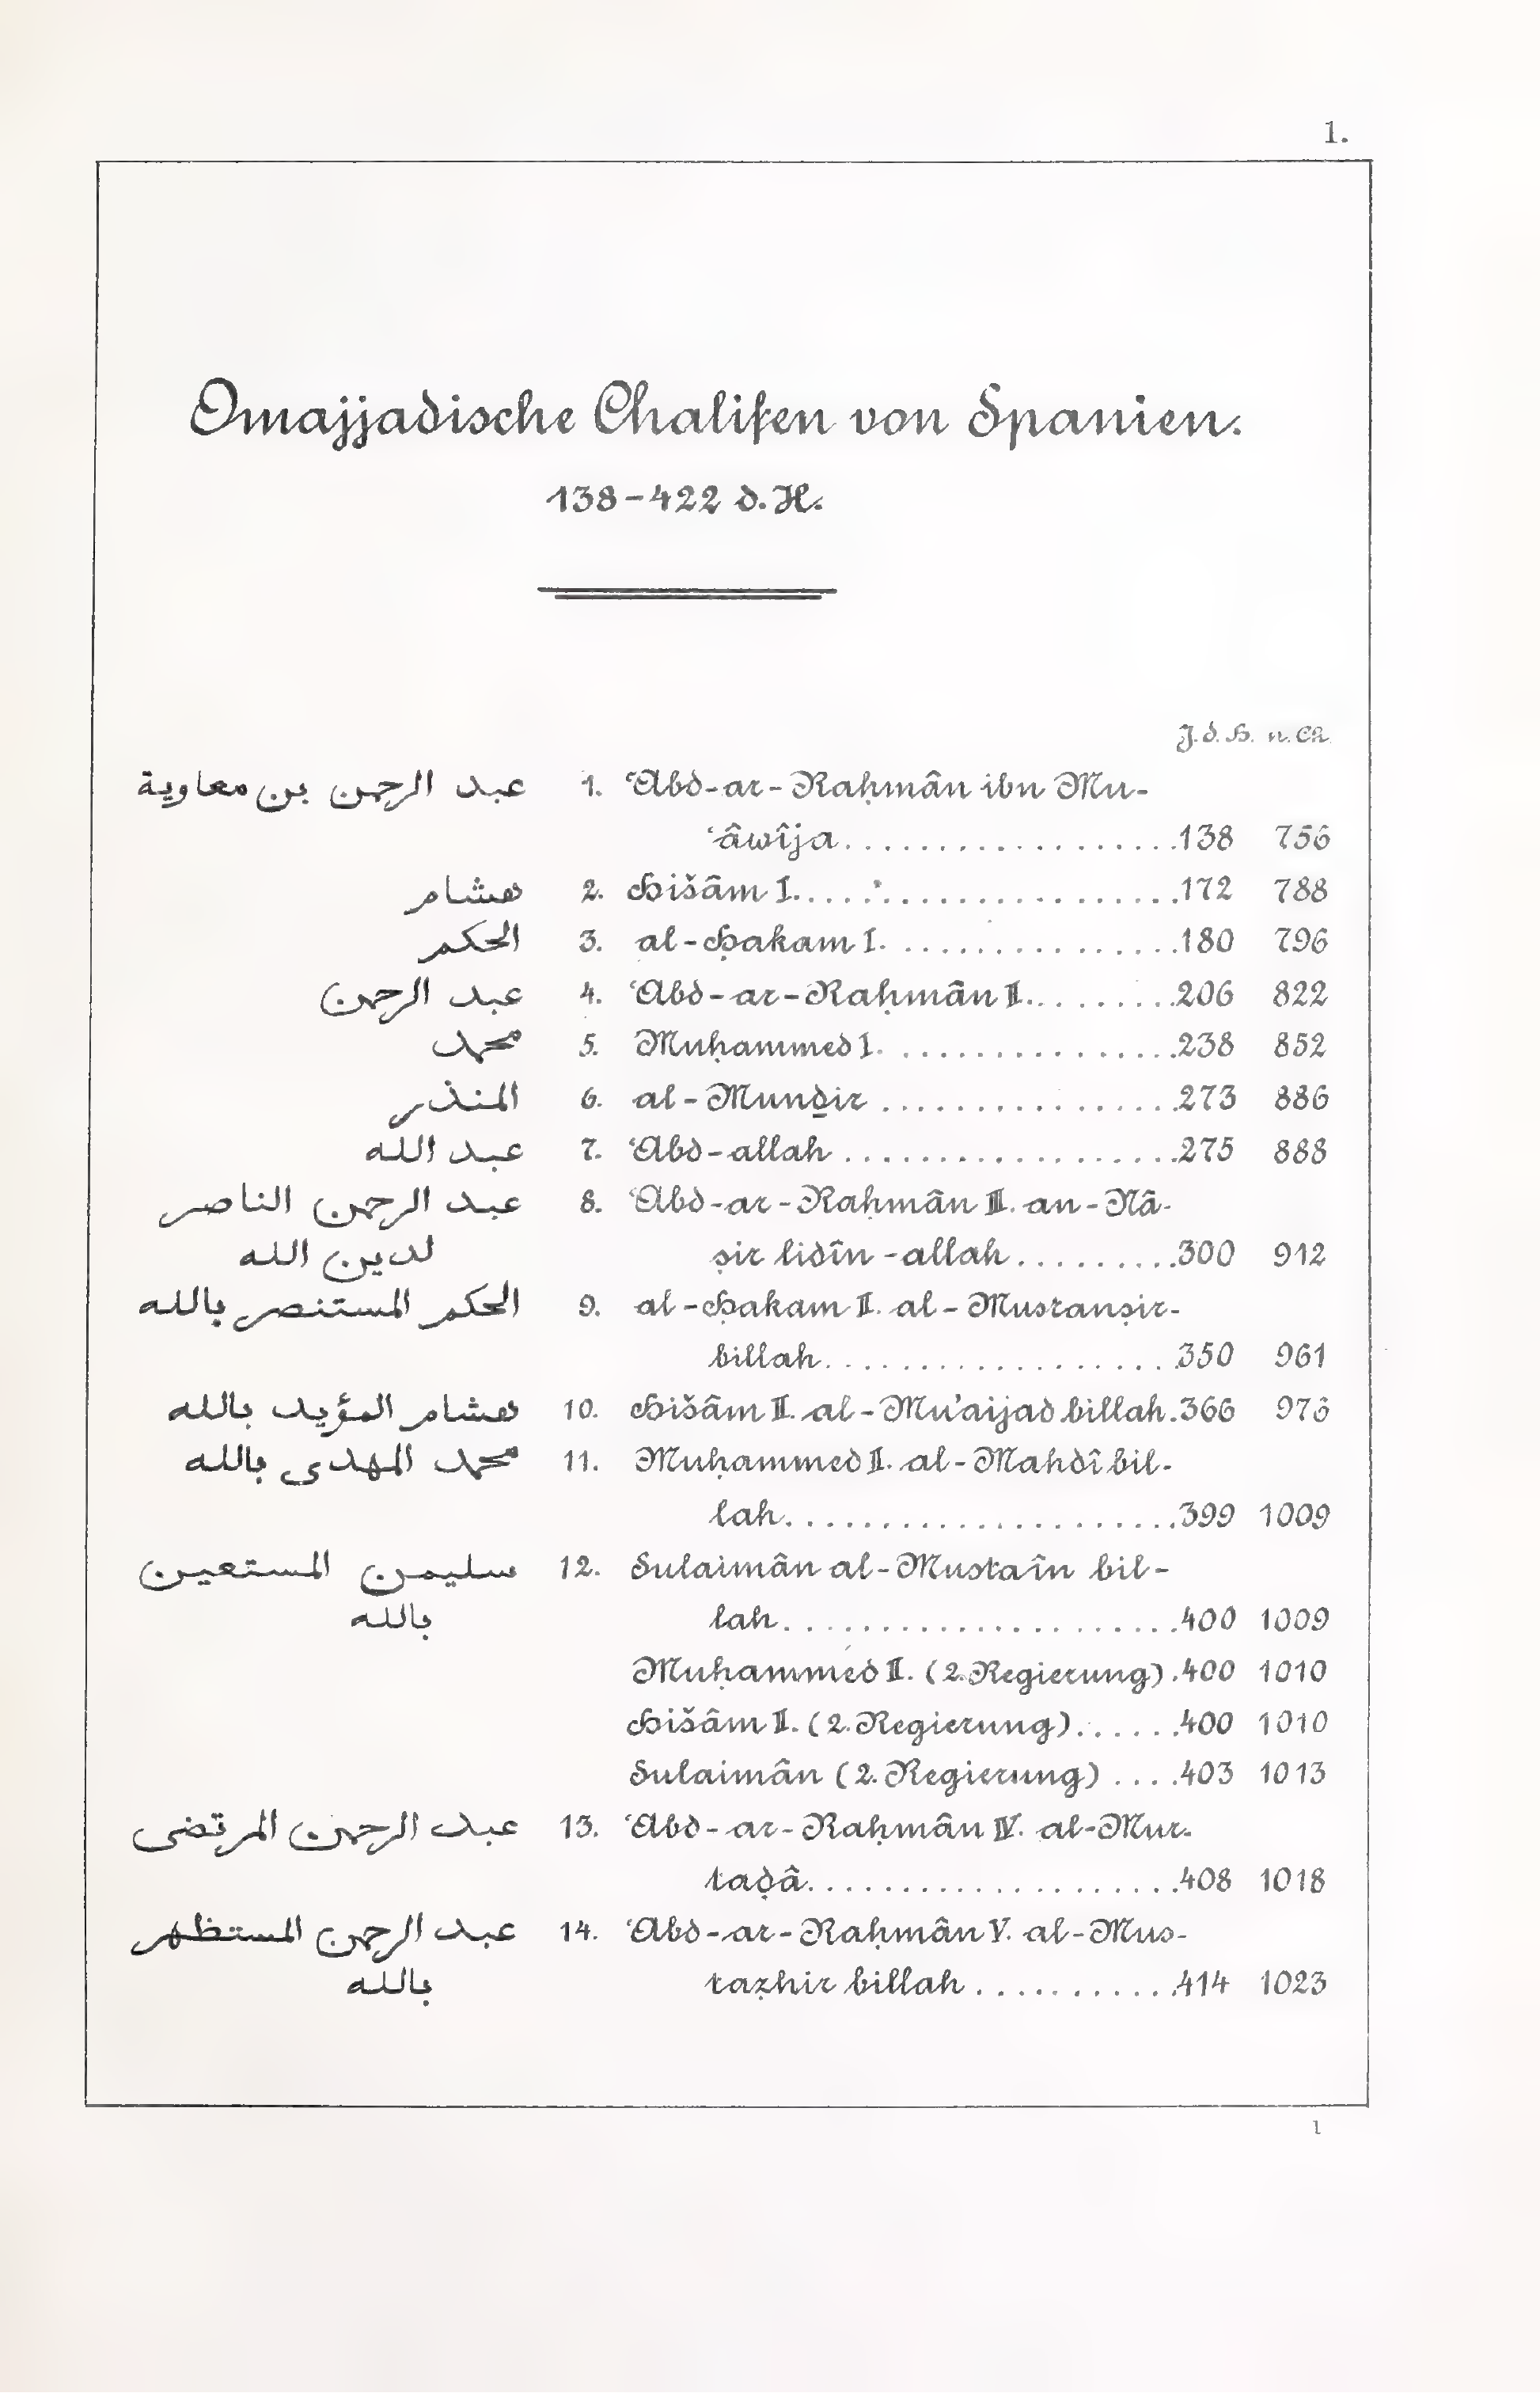 1.
Omajjadische Chalifen von Spanien.
138-422 d. H.
J. d. H. n. Ch.
عبد الرحمن بن معاوية 1. ‘Abd-ar-Raḥmân ibn Mu-
‘âwîja. . . . . . . . . . . . . . . . . . .138 756
هشام 2. Hišâm I. . . . . . . . . . . . . . . . . . . .172 788
الحكم 3. al-Ḥakam I. . . . . . . . . . . . . . . .180 796
عبد الرحمن 4. ‘Abd-ar-Raḥmân II. . . . . . . . .206 822
محمد 5. Muḥammed I. . . . . . . . . . . . . . . .238 852
المنذر 6. al-Munḏir . . . . . . . . . . . . . . . .273 886
عبد الله 7. ‘Abd-allah . . . . . . . . . . . . . . . . . .275 888
عبد الرحمن الناصر 8. ‘Abd-ar-Raḥmân III. an-Nâ-
لدين الله ṣir lidîn-allah . . . . . . . . .300 912
الحكم المستنصر بالله 9. al-Ḥakam II. al-Mustanṣir-
billah. . . . . . . . . . . . . . . . . . .350 961
هشام المؤيد بالله 10. Hišâm II. al-Mu’aijad billah.366 976
محمد المهدى بالله 11. Muḥammed II. al-Mahdî bil-
lah. . . . . . . . . . . . . . . . . . . . .399 1009
سليمن المستعين 12. Sulaimân al-Mustaîn bil-
بالله lah. . . . . . . . . . . . . . . . . . . . .400 1009
Muḥammed II. (2. Regierung) .400 1010
Hišâm II. (2. Regierung). . . . . .400 1010
Sulaimân (2. Regierung) . . . .403 1013
عبد الرحمن المرتضى 13. ‘Abd-ar-Raḥmân IV. al-Mur-
taḍâ. . . . . . . . . . . . . . . . . . . .408 1018
عبد الرحمن المستظهر 14. ‘Abd-ar-Raḥmân V. al-Mus-
بالله taẓhir billah . . . . . . . . . . .414 1023
1